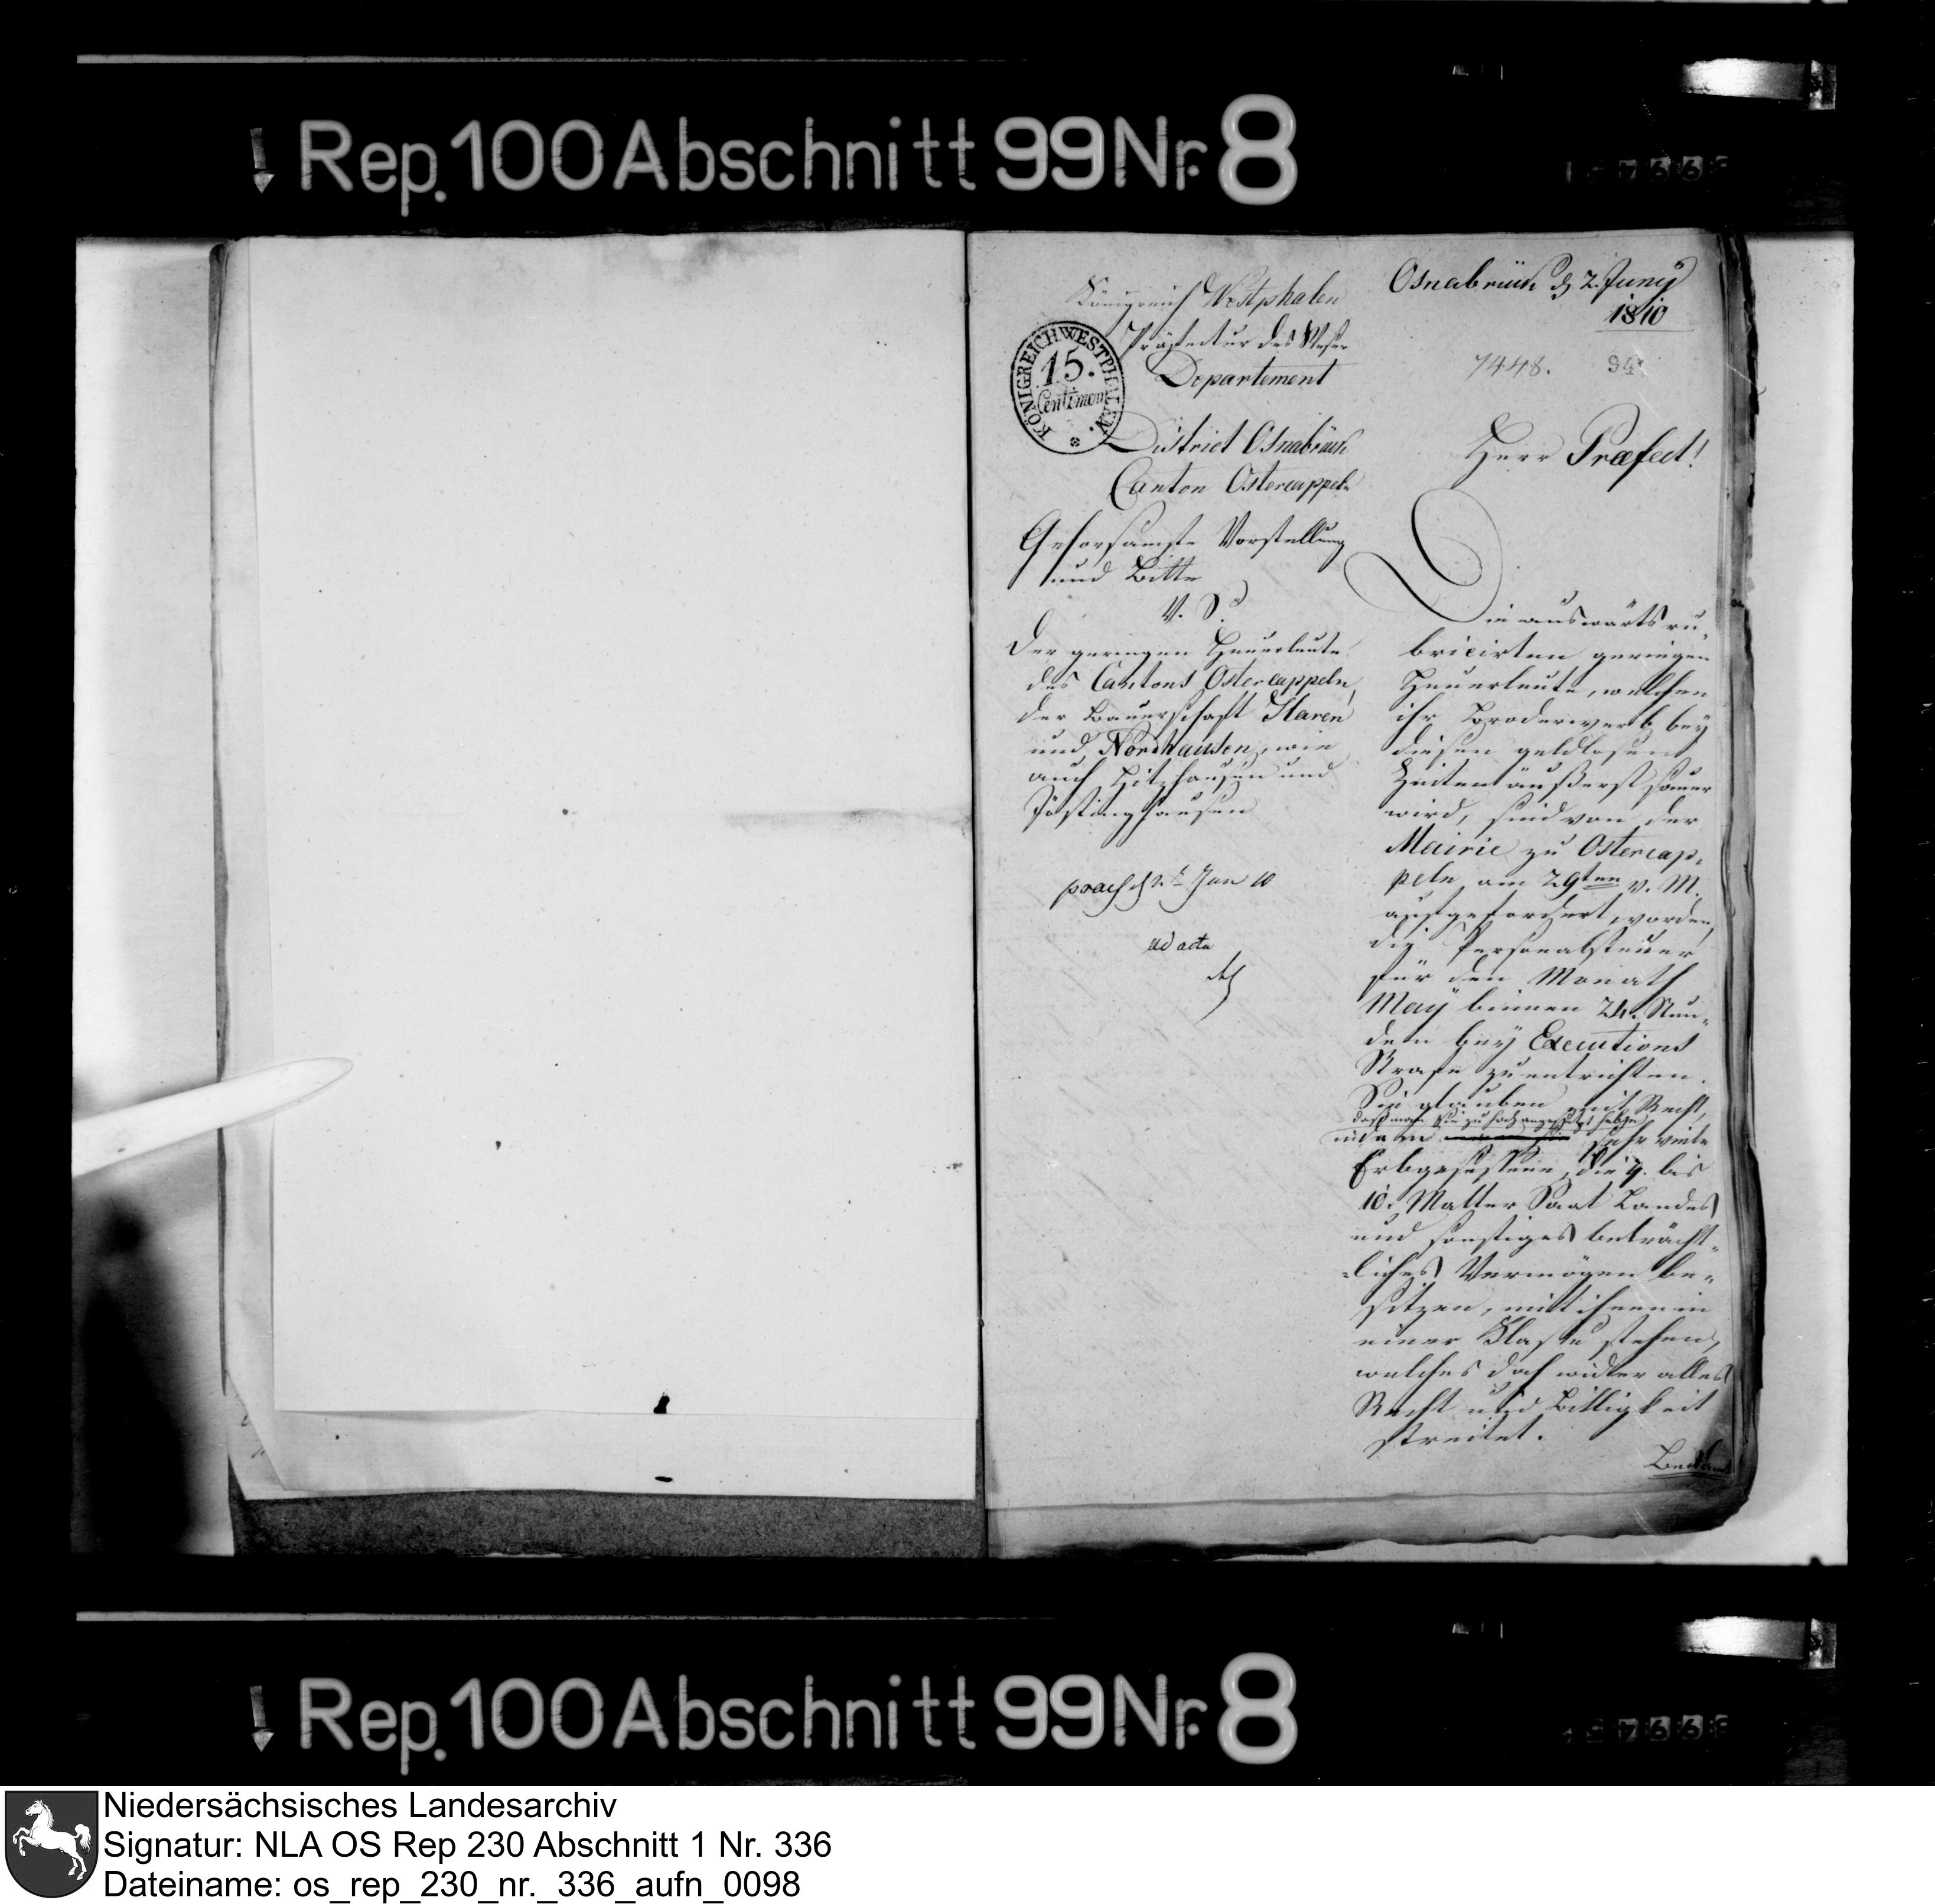 Rep. 100 Abschnitt 99 Nr. 8
Königreich Westphalen
Präfectur des Weser
Departement
KÖNIGREICH WESTPHALEN.
15.
Centimen
District Osnabrück
Canton Ostercappeln
Gehorsamste Vorstellung
und Bitte
V. S.
Der geringen Heuerleute
des Cantons Ostercappeln,
der Bauerschaft Haren
und Nordhausen, wie
auch Hitzhausen und
Jöstinghausen
Jun 10
ad acta
Osnabrück d 2. Juny
1810
7448. 94
Herr Præfect!
Die auswärts ru-
bricirten geringen
Heuerleute, welchen
ihr Broderwerb bey
diesen geldlosen
Zeiten äußerst sauer
wird, sind von der
Mairie zu Ostercap-
peln am 29ten v. M.
aufgefordert worden,
die Personalsteuer
für den Monath
May binnen 24. Stun-
den bey Executions
Strafe zu entrichten.
Sie glauben mit Recht,
daß man sie zu hoch angesetzt habe,
indem sehr viele
Erbgesessene, die 9. bis
10. Malter Saat Landes
und sonstiges beträcht-
liches Vermögen be-
sitzen, mit ihnen in
einer Klasse stehen,
welches doch wider alles
Recht und Billigkeit
streitet.
Rep. 100 Abschnitt 99 Nr. 8
Niedersächsisches Landesarchiv
Signatur: NLA OS Rep 230 Abschnitt 1 Nr. 336
Dateiname: os_rep_230_nr._336_aufn_0098